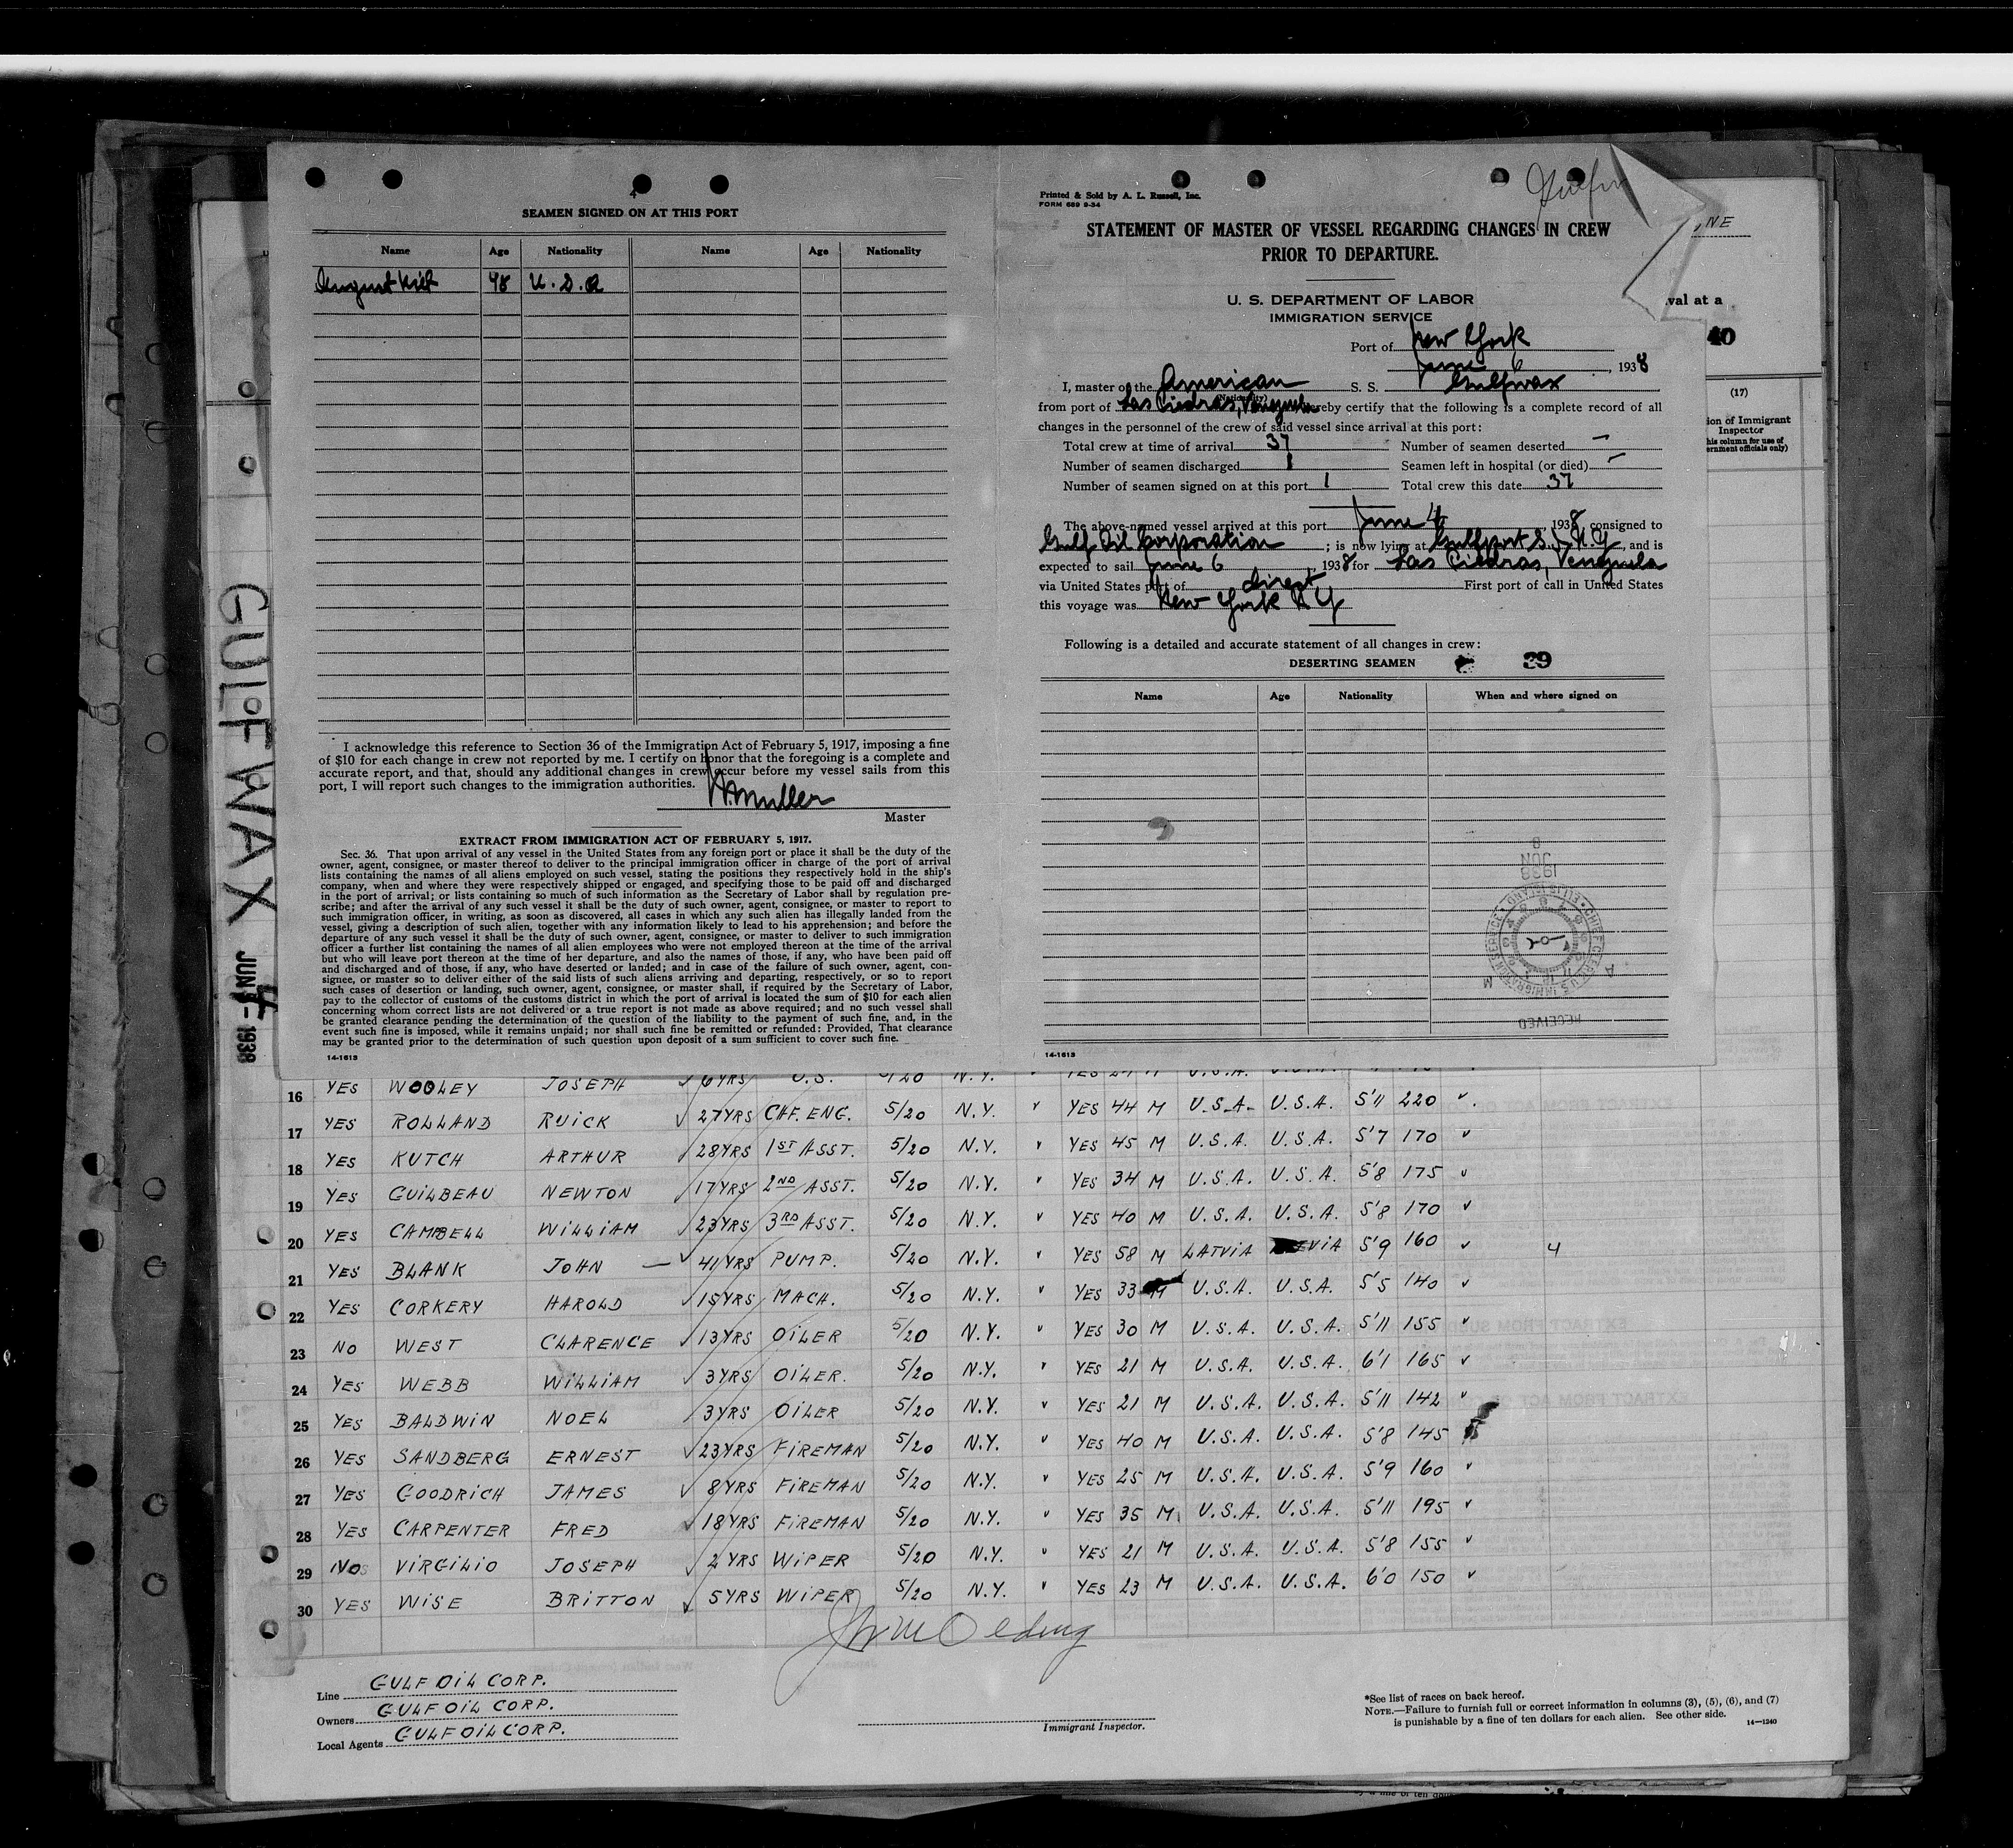 4
SEAMEN SIGNED ON AT THIS PORT
Name Age Nationality Name Age Nationality
August 48 U.S.A
I acknowledge this reference to Section 36 of the Immigration Act of February 5, 1917, imposing a fine
of $10 for each change in crew not reported by me. I certify on honor that the foregoing is a complete and
accurate report, and that, should any additional changes in crew occur before my vessel sails from this
port, I will report such changes to the immigration authorities.
Muller
Master
EXTRACT FROM IMMIGRATION ACT OF FEBRUARY 5, 1917.
Sec. 36. That upon arrival of any vessel in the United States from any foreign port or place it shall be the duty of the
owner, agent, consignee, or master thereof to deliver to the principal immigration officer in charge of the port of arrival
lists containing the names of all aliens employed on such vessel, stating the positions they respectively hold in the ship's
company, when and where they were respectively shipped or engaged, and specifying those to be paid off and discharged
in the port of arrival; or lists containing so much of such information as the Secretary of Labor shall by regulation pre-
scribe; and after the arrival of any such vessel it shall be the duty of such owner, agent, consignee, or master to report to
such immigration officer, in writing, as soon as discovered, all cases in which any such alien has illegally landed from the
vessel, giving a description of such alien, together with any information likely to lead to his apprehension; and before the
departure of any such vessel it shall be the duty of such owner, agent, consignee, or master to deliver to such immigration
officer a further list containing the names of all alien employees who were not employed thereon at the time of the arrival
but who will leave port thereon at the time of her departure, and also the names of those, if any, who have been paid off
and discharged and of those, if any, who have deserted or landed; and in case of the failure of such owner, agent, con-
signee, or master so to deliver either of the said lists of such aliens arriving and departing, respectively, or so to report
such cases of desertion or landing, such owner, agent, consignee, or master shall, if required by the Secretary of Labor,
pay to the collector of customs of the customs district in which the port of arrival is located the sum of $10 for each alien
concerning whom correct lists are not delivered or a true report is not made as above required; and no such vessel shall
be granted clearance pending the determination of the question of the liability to the payment of such fine, and, in the
event such fine is imposed, while it remains unpaid; nor shall such fine be remitted or refunded: Provided, That clearance
may be granted prior to the determination of such question upon deposit of a sum sufficient to cover such fine.
14-1613
Printed & Sold by A. L. Russell, Inc.
FORM 689 9-34
STATEMENT OF MASTER OF VESSEL REGARDING CHANGES IN CREW
PRIOR TO DEPARTURE.
U. S. DEPARTMENT OF LABOR
IMMIGRATION SERVICE
Port of New York
June 6, 1938
I, master of the American S. S. Gulfwax
(Nationality)
from port of Las Piedras, Venezuela hereby certify that the following is a complete record of all
changes in the personnel of the crew of said vessel since arrival at this port:
Total crew at time of arrival 37 Number of seamen deserted —
Number of seamen discharged 1 Seamen left in hospital (or died) —
Number of seamen signed on at this port 1 Total crew this date 37
The above-named vessel arrived at this port June 4, 1938, consigned to
Gulf Oil Corporation; is now lying at Gulfport S.I. N.Y, and is
expected to sail June 6, 1938 for Las Piedras, Venezuela
via United States port of direct First port of call in United States
this voyage was New York N Y
Following is a detailed and accurate statement of all changes in crew:
DESERTING SEAMEN 39
Name Age Nationality When and where signed on
1938
JUN
8
CHIEF CLERK U.S. IMMIGRATION SERVICE ELLIS ISLAND
RECEIVED
14-1613
NE
val at a
40
(17)
ion of Immigrant
Inspector
his column for use of
ernment officials only)
GULFWAX
JUN 4 - 1938
16 YES WOOLEY JOSEPH 6YRS U.S. 5/20 N.Y. YES
17 YES ROLLAND RUICK 27YRS CHF. ENG. 5/20 N.Y. YES 44 M U.S.A. U.S.A. 5'11 220
18 YES KUTCH ARTHUR 28YRS 1ST ASST. 5/20 N.Y. YES 45 M U.S.A. U.S.A. 5'7 170
19 YES GUILBEAU NEWTON 17YRS 2ND ASST. 5/20 N.Y. YES 34 M U.S.A. U.S.A. 5'8 175
20 YES CAMPBELL WILLIAM 23YRS 3RD ASST. 5/20 N.Y. YES 40 M U.S.A. U.S.A. 5'8 170
21 YES BLANK JOHN — 41YRS PUMP. 5/20 N.Y. YES 58 M LATVIA LATVIA 5'9 160 4
22 YES CORKERY HAROLD 15YRS MACH. 5/20 N.Y. YES 33 M U.S.A. U.S.A. 5'5 140
23 NO WEST CLARENCE 13YRS OILER 5/20 N.Y. YES 30 M U.S.A. U.S.A. 5'11 155
24 YES WEBB WILLIAM 3YRS OILER. 5/20 N.Y. YES 21 M U.S.A. U.S.A. 6'1 165
25 YES BALDWIN NOEL 3YRS OILER 5/20 N.Y. YES 21 M U.S.A. U.S.A. 5'11 142
26 YES SANDBERG ERNEST 23YRS FIREMAN 5/20 N.Y. YES 40 M U.S.A. U.S.A. 5'8 145
27 YES GOODRICH JAMES 8YRS FIREMAN 5/20 N.Y. YES 25 M U.S.A. U.S.A. 5'9 160
28 YES CARPENTER FRED 18YRS FIREMAN 5/20 N.Y. YES 35 M U.S.A. U.S.A. 5'11 195
29 NO VIRGILIO JOSEPH 2YRS WIPER 5/20 N.Y. YES 21 M U.S.A. U.S.A. 5'8 155
30 YES WISE BRITTON 5YRS WIPER 5/20 N.Y. YES 23 M U.S.A. U.S.A. 6'0 150
Line GULF OIL CORP.
Owners GULF OIL CORP.
Local Agents GULF OIL CORP.
Immigrant Inspector.
*See list of races on back hereof.
NOTE.—Failure to furnish full or correct information in columns (3), (5), (6), and (7)
is punishable by a fine of ten dollars for each alien. See other side.
14—1240